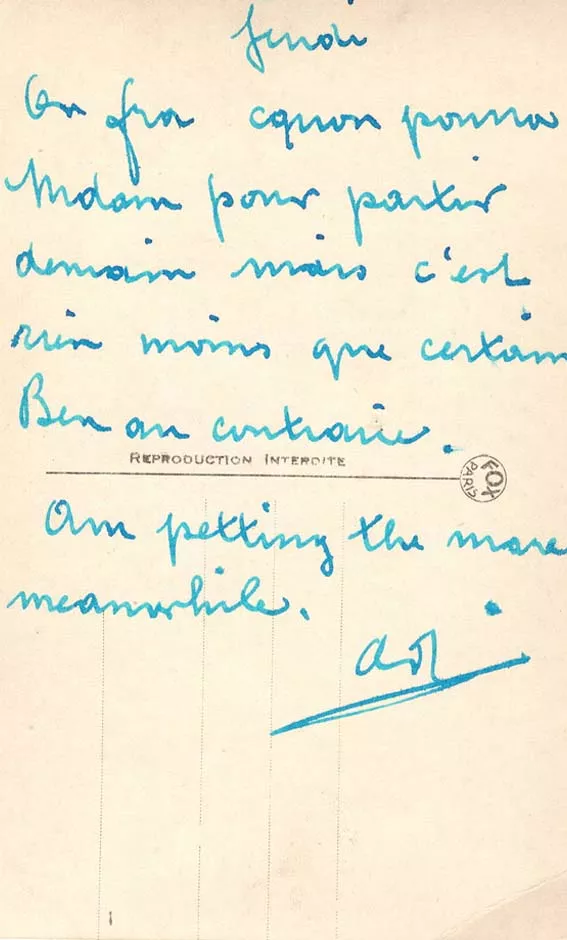 Jeudi
On fra cquon pourra
Mdam pour partir
demain mais c'est
rien moins que certain
Ben au contraire.
REPRODUCTION INTERDITE
FOX
PARIS
Am petting the mare
meanwhile.